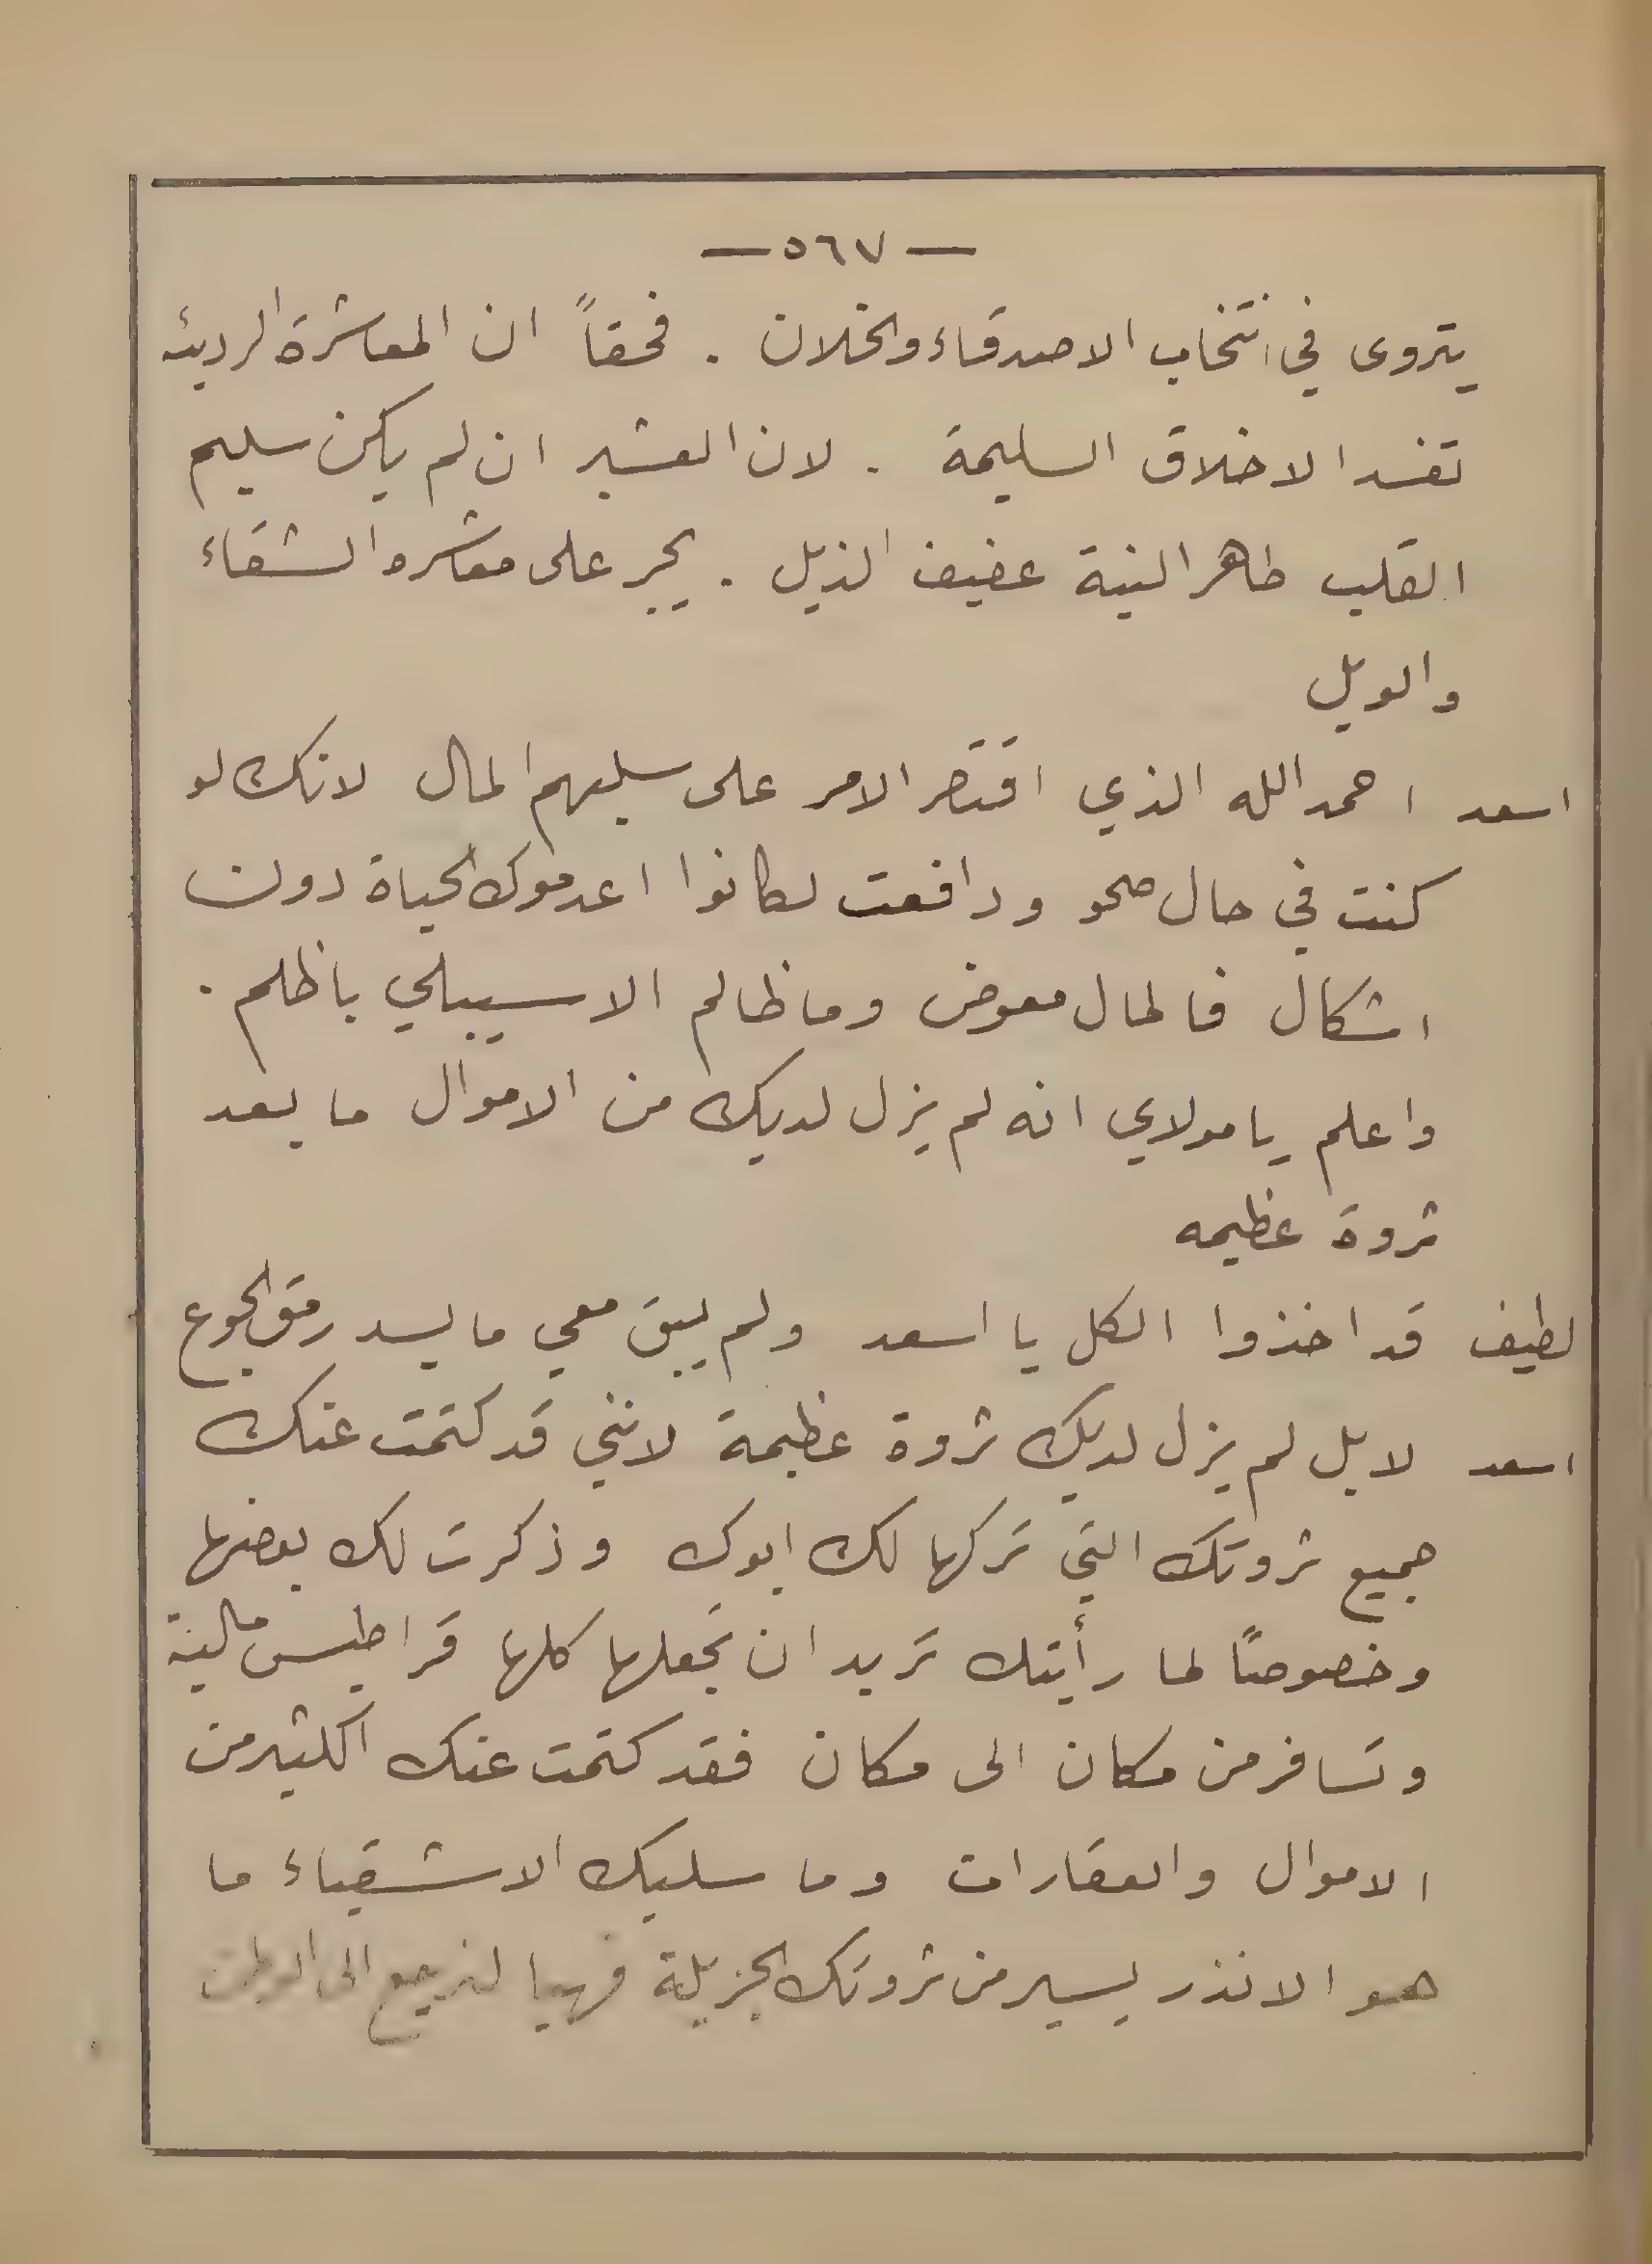 — ٥٦٧ —
يتروى في انتخاب الاصدقاء والخلان . فحقاً ان المعاشرة الرديئه
تفسد الاخلاق السليمة . لان العشير ان لم يكن سليم
القلب طاهر النية عفيف الذيل . يجر على معاشره الشقاء
والويل
اسعد احمد الله الذي اقتصر الامر على سلبهم المال لانك لو
كنت في حال صحو ودافعت لكانوا اعدموك الحياة دون
اشكال فالمال معوض وما ظالم الا سيبلي باظلم .
واعلم يا مولاي انه لم يزل لديك من الاموال ما يعد
ثروة عظيمه
لطيف قد اخذوا الكل يا اسعد ولم يبق معي ما يسد رمق الجوع
اسعد لا بل لم يزل لديك ثروة عظيمة لانني قد كتمت عنك
جميع ثروتك التي تركها لك ابوك وذكرت لك بعضها
وخصوصاً لما رأيتك تريد ان تجعلها كلها قراطيس مالية
وتسافر من مكان الى مكان فقد كتمت عنك الكثير من
الاموال والعقارات وما سلبك الاشقياء ما
هو الا نذر يسير من ثروتك الجزيلة فهيا لنرجع الى الوطن